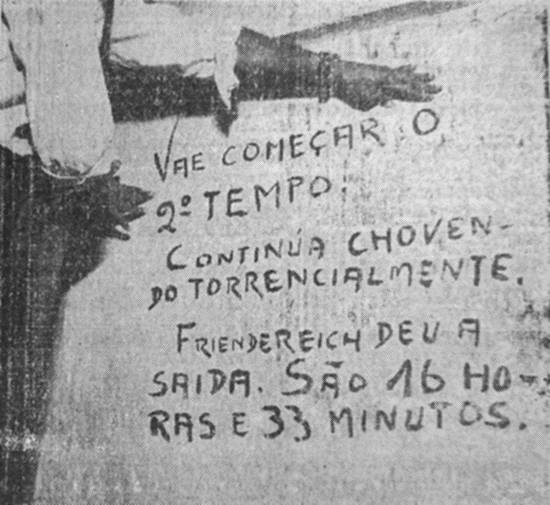 VAE COMEÇAR O
2º TEMPO.
CONTINÚA CHOVEN-
DO TORRENCIALMENTE.
FRIENDEREICH DEU A
SAIDA. SÃO 16 HO-
RAS E 33 MINUTOS.